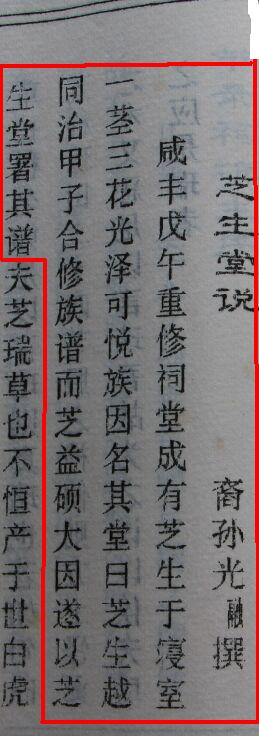 芝生堂说
裔孙光融撰
咸丰戊午重修祠堂成有芝生于寝室
一茎三花光泽可悦族因名其堂曰芝生越
同治甲子合修族谱而芝益硕大因遂以芝
生堂署其谱夫芝瑞草也不恒产于世白虎